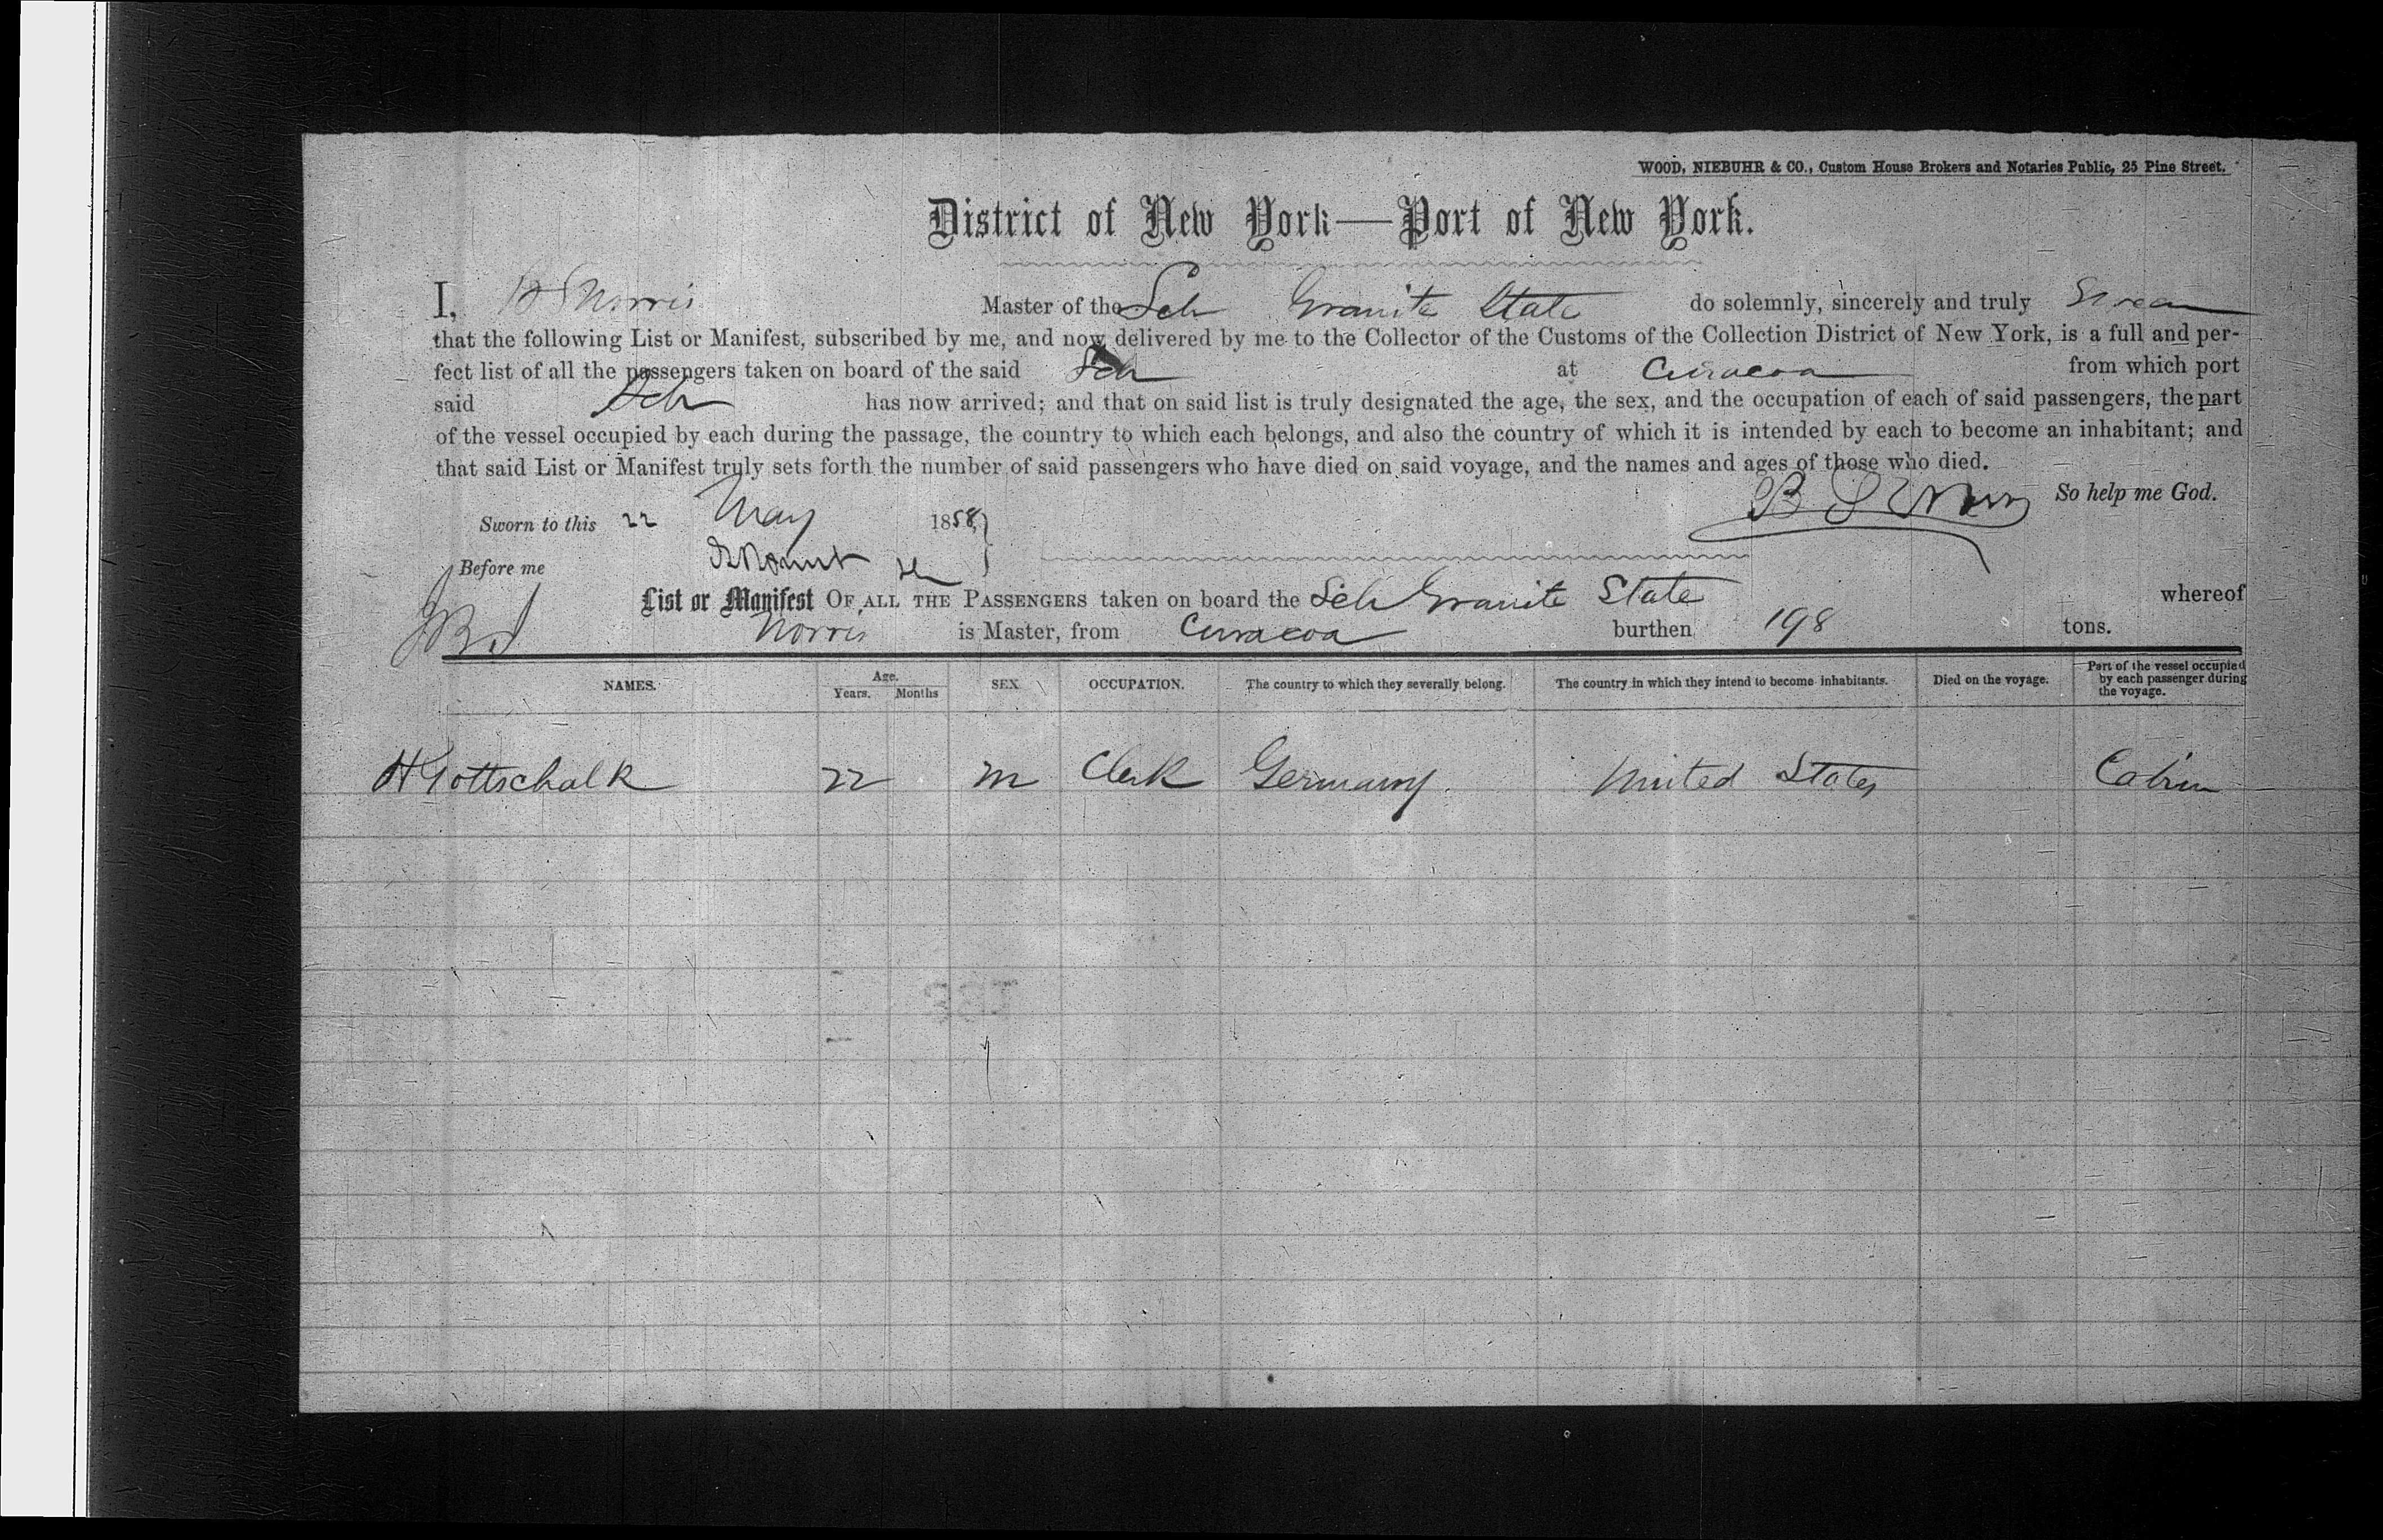 WOOD, NIEBUHR & CO., Custom House Brokers and Notaries Public, 25 Pine Street.
District of New York—Port of New York.
I, B S Norris Master of the Sch Granite State do solemnly, sincerely and truly Swear
that the following List or Manifest, subscribed by me, and now delivered by me to the Collector of the Customs of the Collection District of New York, is a full and per-
fect list of all the passengers taken on board of the said Sch at Curacoa from which port
said Sch has now arrived; and that on said list is truly designated the age, the sex, and the occupation of each of said passengers, the part
of the vessel occupied by each during the passage, the country to which each belongs, and also the country of which it is intended by each to become an inhabitant; and
that said List or Manifest truly sets forth the number of said passengers who have died on said voyage, and the names and ages of those who died.
So help me God.
Sworn to this 22 May 1858,
Before me
List or Manifest OF ALL THE PASSENGERS taken on board the Sch Granite State whereof
Norris is Master, from Curacoa burthen 198 tons.
NAMES. Age. Years. Months SEX OCCUPATION. The country to which they severally belong. The country in which they intend to become inhabitants. Died on the voyage. Part of the vessel occupied by each passenger during the voyage.
H Gottschalk 22 m Clerk Germany. United States Cabin